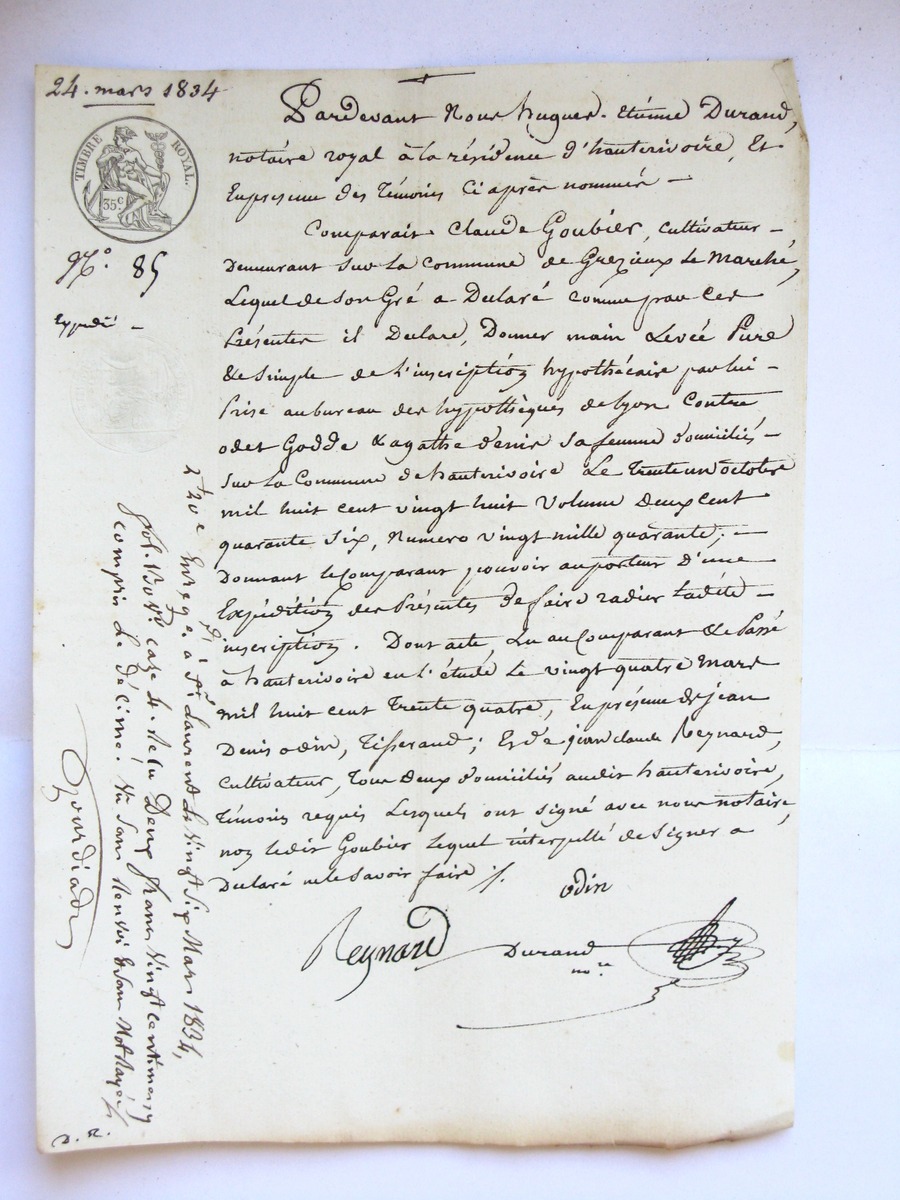 24. mars 1834
TIMBRE ROYAL.
35c
No. 85
Expédié
Pardevant Nous hugues-Etienne Durand,
notaire royal à la résidence d'hauterivoire, Et
En presence des Témoins Ci après nommés
Comparait Claude Goubier, cultivateur
Demeurant sur la commune de Grezieux Le Marché,
Lequel de son Gré a Declaré comme par Ces
Présentes il Declare, Donner main Levée Pure
& simple de l'inscription hypothécaire par lui
Prise au bureau des hypothèques de lyon Contre
odet Godde & agathe denis sa femme domiciliés
sur la Commune de hauterivoire Le trente un octobre
mil huit cent vingt huit Volume Deux cent
quarante six, Numero vingt mille quarante;
Donnant le Comparant pouvoir au porteur d'une
Expédition des Présentes de faire radier ladite
inscription. Dont acte, Lu au Comparant & Passé
à hauterivoire en l'étude Le vingt quatre Mars
mil huit cent Trente quatre, En présence de jean
Denis odin, Tisserand; Et de jean claude Reynard,
cultivateur, Tous Deux domiciliés audit hauterivoire,
Témoins requis Lesquels ont signé avec nous notaire,
non ledit Goubier Lequel interpellé de Signer a
Declaré ne le Savoir faire /.
odin
Reynard
Durand
nore
2f 20c Enregé à St Laurent le Vingt Six Mars 1834,
fol. 130 case 4. Relu Deux francs Vingt centimes
compris Le Décime. Vu sans Renvoi & sans Mot Rayé
D. R.